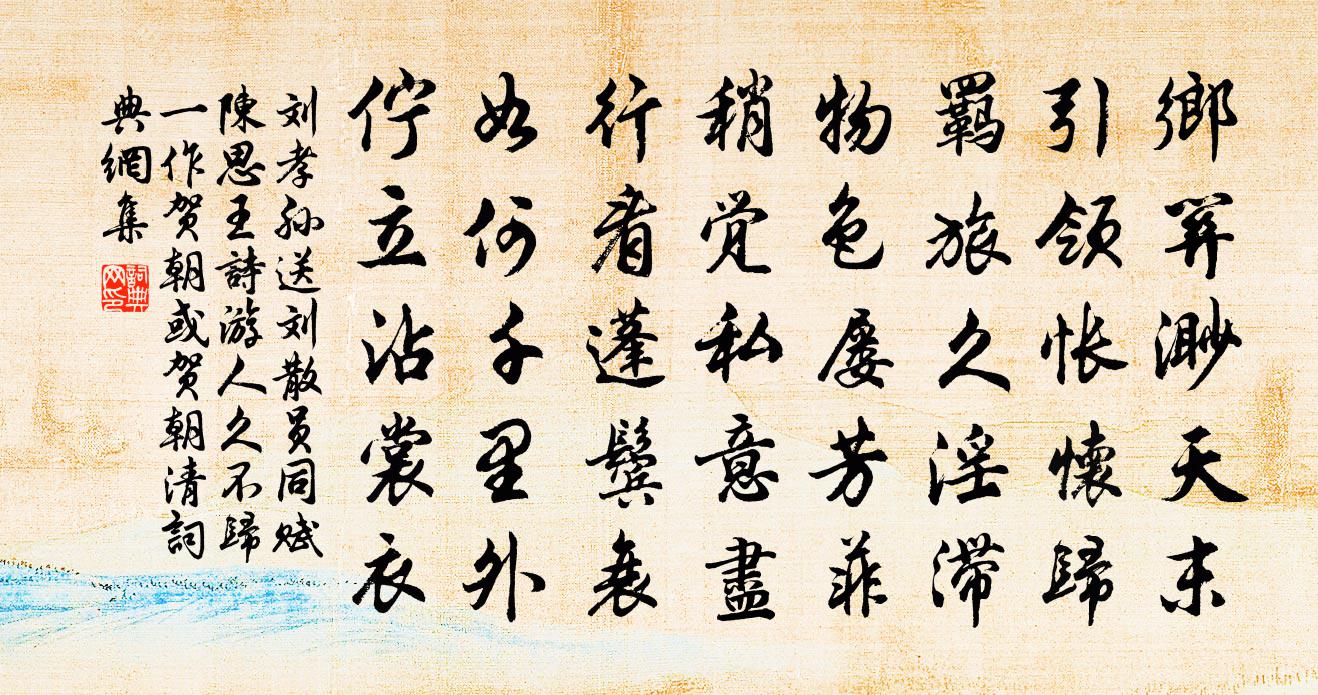 鄉關渺天末
引領怅懷歸
羈旅久淫滯
物色屡芳菲
稍觉私意盡
行看蓬鬢衰
如何千里外
佇立沾裳衣
刘孝孙送刘散员同赋
陳思王詩游人久不歸
一作贺朝或贺朝清詞
典網集
詞典
网印